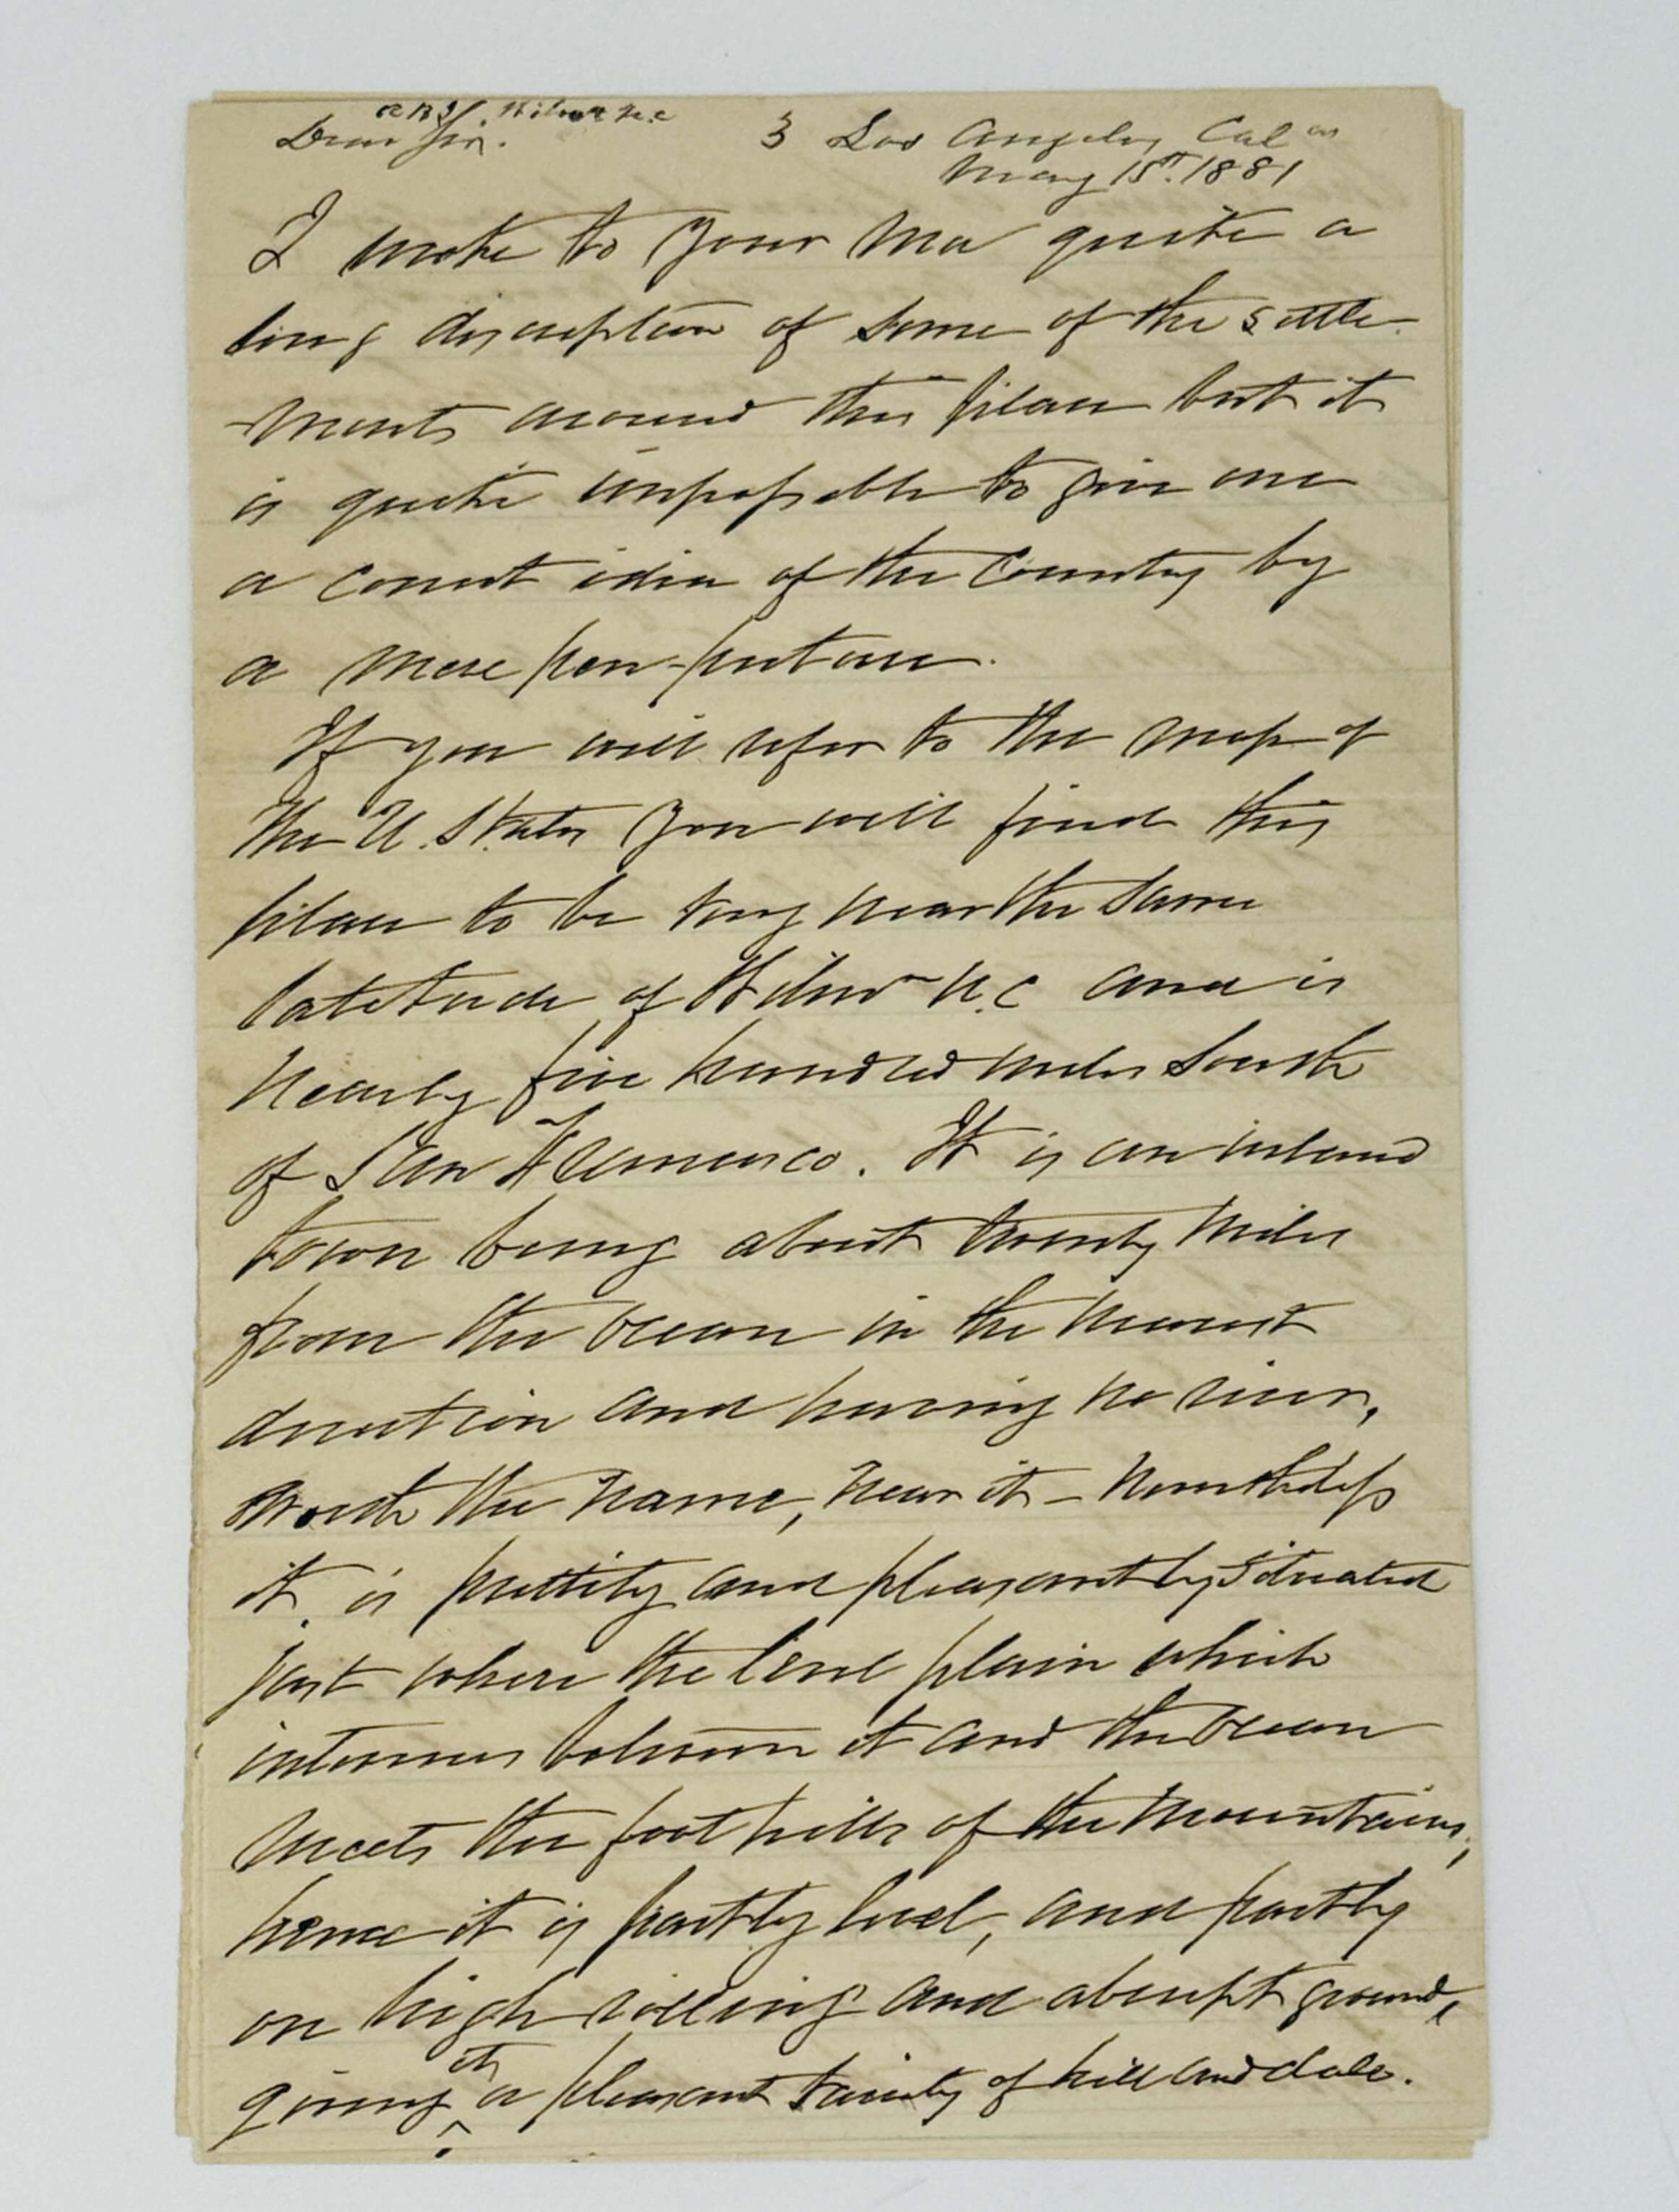 Wilm N.C
Dear Sir. 3 Los Angeles Cal
May 15th. 1881
I wrote to your Ma quite a
long discription of some of the settle-
-ments around this place but it
is quite impossible to give one
a correct idea of the country by
a mere pen-picture.
If you will refer to the map of
the U. States you will find this
place to be very near the same
latitude of Wilm N.C and is
nearly five hundred miles South
of San Francisco. It is an inland
town being about twenty miles
from the ocean in the nearest
direction and having no river,
worth the name, near it - Nevertheless
it is prettily and pleasantly situated
just where the level plain which
intervenes between it and the ocean
meets the foot hills of the mountains,
hence it is partly level, and partly
on high rolling and abrupt ground,
giving it a pleasant variety of hill and dale.